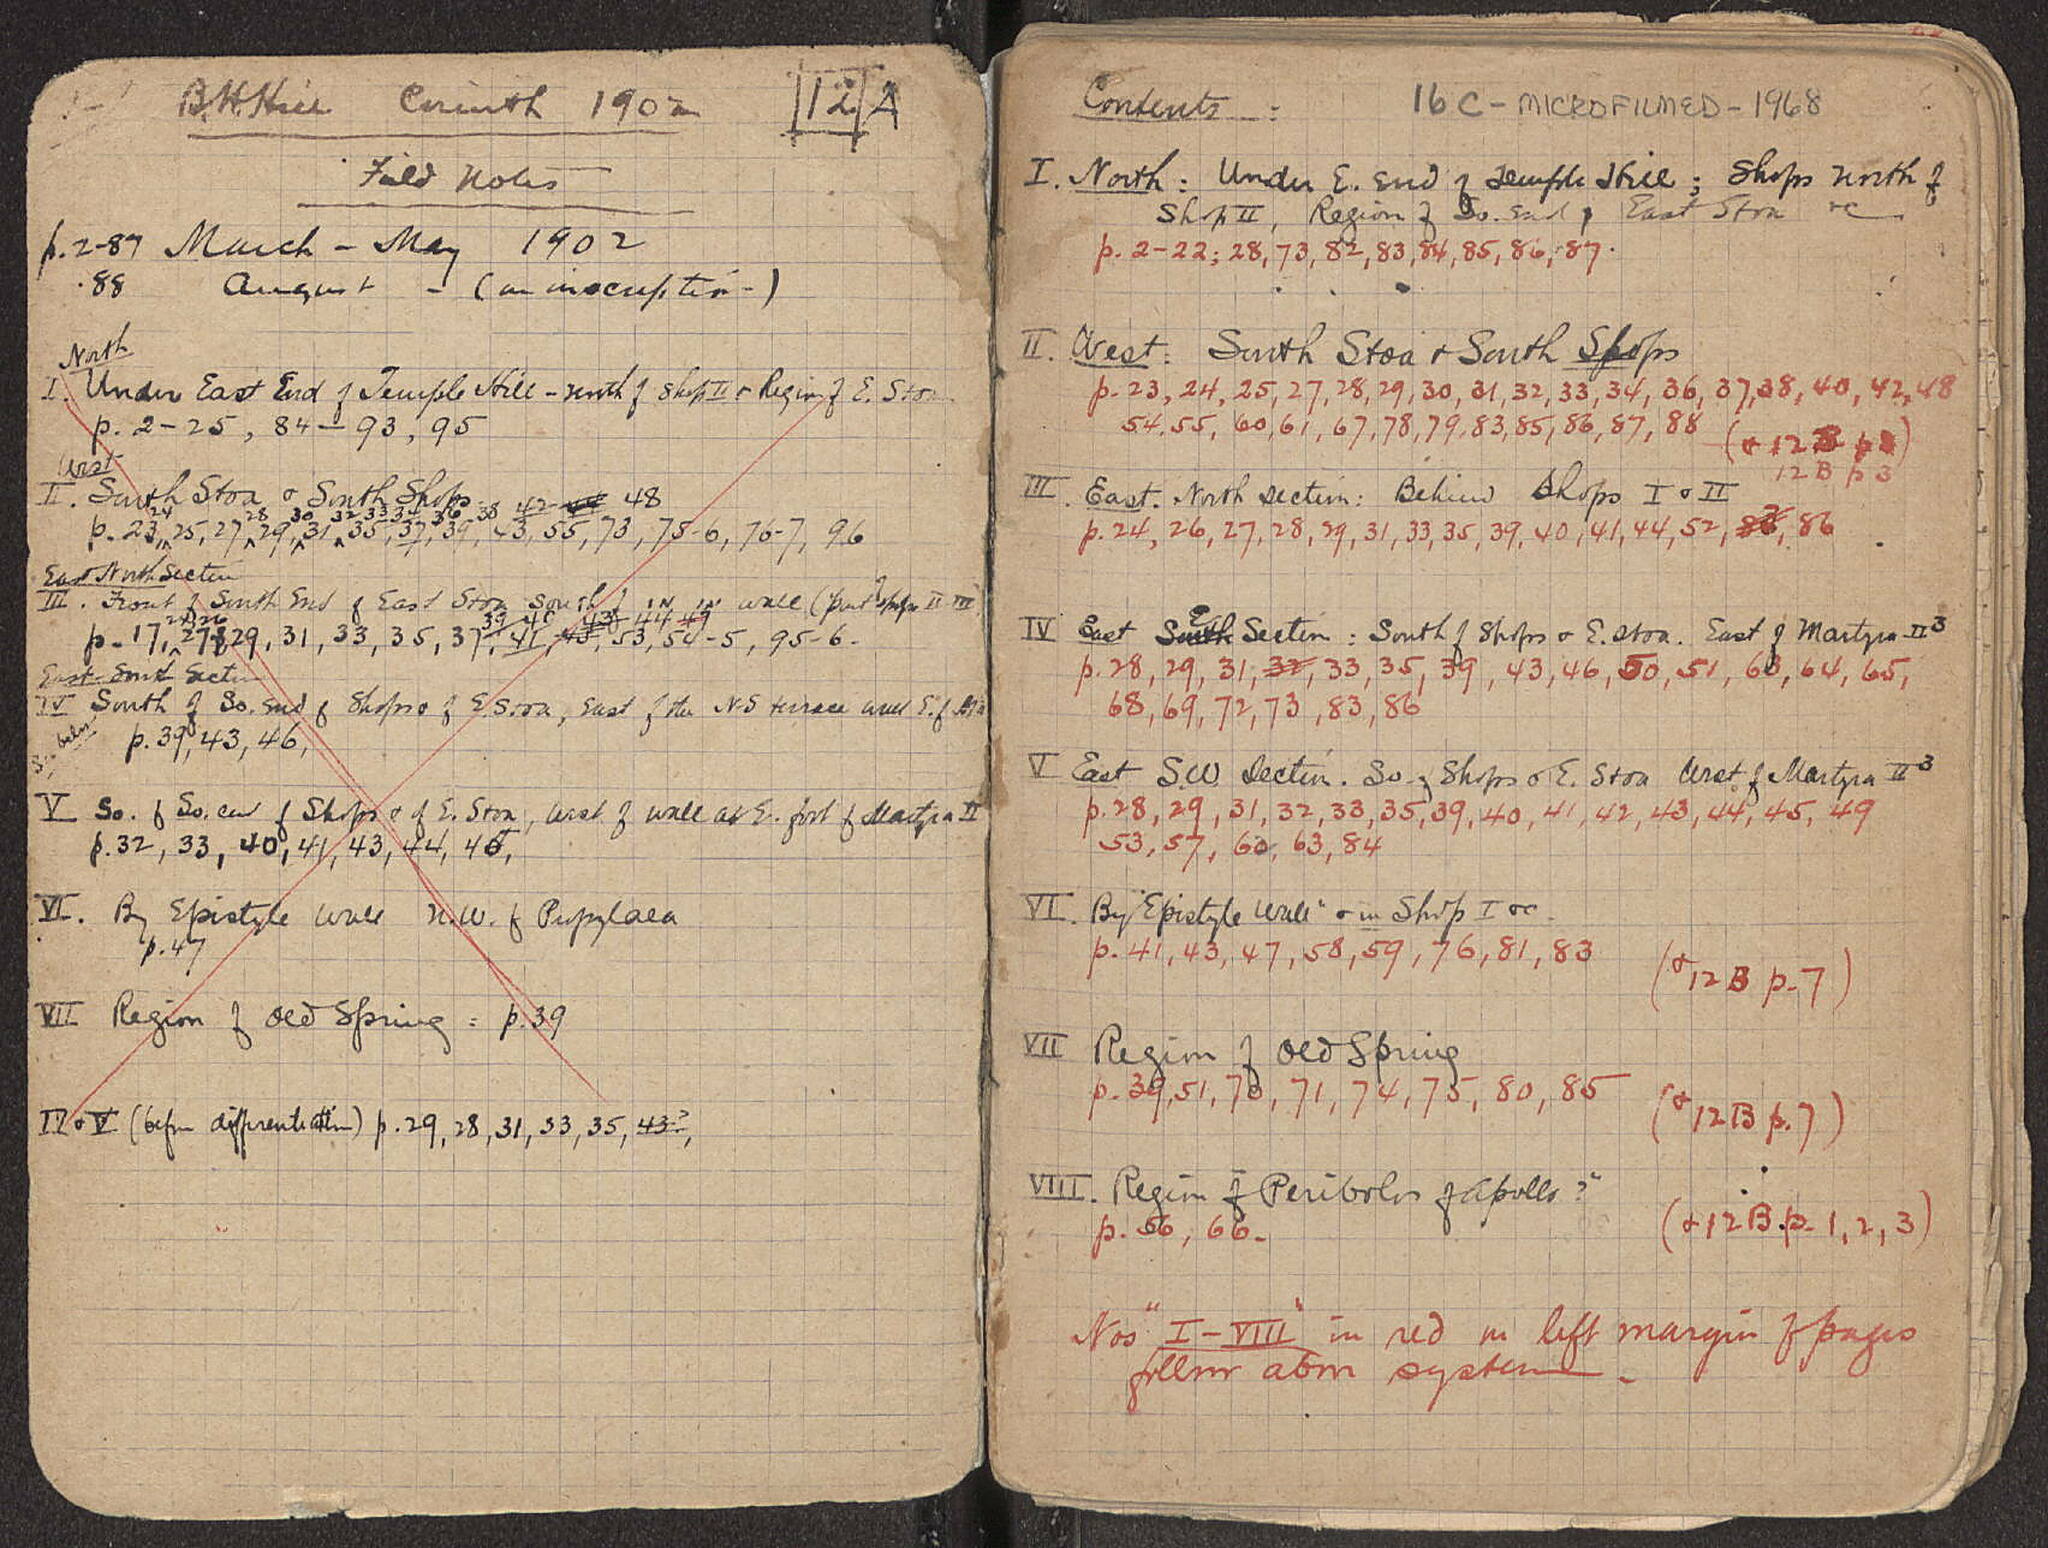 B.H. Hill Corinth 1902 12 A
Field Notes
p. 2-87 March - May 1902
.88 August - (an inscription-)
North
I. Under East End of Temple Hill - north of Shop II & Region of E. Stoa
p. 2-25, 84-93, 95
West
II. South Stoa & South Shops 38 42 48
24 28 30 32 33 34 36
p. 23, 25, 27, 29, 31, 35, 37, 39, 43, 55, 73, 75-6, 76-7, 96
East North Section
III. Front of South End of East Stoa South of wall
24, 26 39 40 43 44 49
p. 17, 27, 29, 31, 33, 35, 37, 41, 43, 53, 54-5, 95-6.
East South Section
IV South of So. end of Shops & of E. Stoa, East of the N-S terrace wall E. of
below p. 39, 43, 46,
V So. of So. end of Shops & of E. Stoa, West of wall at E. foot of Martyra II
p. 32, 33, 40, 41, 43, 44, 45,
VI. By Epistyle Wall N.W. of Propylaea
p. 47
VII Region of Old Spring = p. 39
IV & V (before differentiation) p. 29, 28, 31, 33, 35, 43?,
Contents : 16 C - MICROFILMED - 1968
I. North: Under E. End of Temple Hill; Shops north of
Shop II, Region of So. end of East Stoa &c
p. 2-22; 28, 73, 82, 83, 84, 85, 86, 87.
II. West: South Stoa & South Shops
p. 23, 24, 25, 27, 28, 29, 30, 31, 32, 33, 34, 36, 37, 38, 40, 42, 48
54, 55, 60, 61, 67, 78, 79, 83, 85, 86, 87, 88 (& 12 B p 3)
12 B p 3
III. East. North Section: Behind Shops I & II
p. 24, 26, 27, 28, 29, 31, 33, 35, 39, 40, 41, 44, 52, 86
IV East South E Section: South of Shops & E. Stoa. East of Martyra II³
p. 28, 29, 31, 32, 33, 35, 39, 43, 46, 50, 51, 63, 64, 65,
68, 69, 72, 73, 83, 86
V East S.W. Section. So. of Shops & E. Stoa West of Martyra II³
p. 28, 29, 31, 32, 33, 35, 39, 40, 41, 42, 43, 44, 45, 49
53, 57, 60, 63, 84
VI. By "Epistyle Wall" & in Shop I &c.
p. 41, 43, 47, 58, 59, 76, 81, 83 (& 12 B p. 7)
VII Region of Old Spring
p. 39, 51, 70, 71, 74, 75, 80, 85 (& 12 B p. 7)
VIII. Region of Peribolos of Apollo ?"
p. 56, 66. (& 12 B p. 1, 2, 3)
Nos "I-VIII" in red in left margin of pages
follow above system.